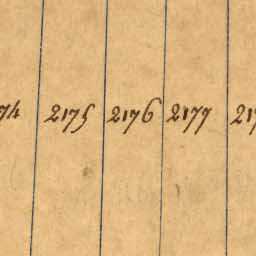 74 2175 2176 2177 217